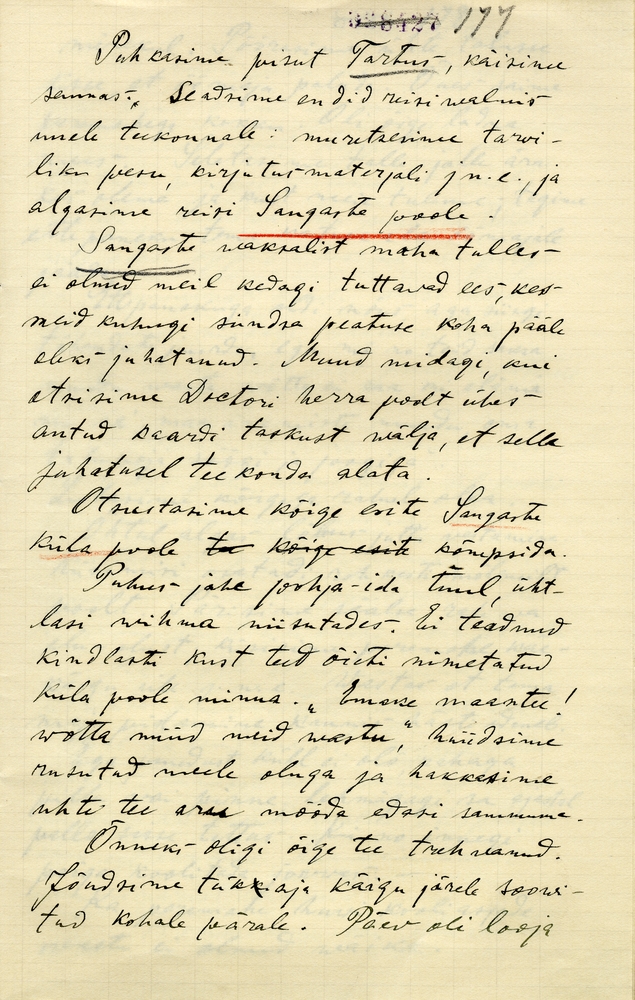 8427 177
Puhkasime pisut Tartus, käisime
saunas. Seadsime endid reisiwalmis
uuele teekonnale: muretsesime tarwi-
liku pesu, kirjutusmaterjali j.n.e., ja
algasime reisi Sangaste poole.
Sangaste waksalist maha tulles
ei olnud meil kedagi tuttawad ees, kes
meid kuhugi sündsa peatuse koha pääle
oleks juhatanud. Muud midagi, kui
otsisime Doctori herra poolt ühes
antud kaardi taskust wälja, et selle
juhatusel teekonda alata.
Otsustasime kõige esite Sangaste
küla poole kõige esite kõmpsida.
Puhus jahe põhja-ida tuul, üht-
lasi wihma niisutades. Ei teadnud
kindlasti kust teed õieti nimetatud
küla poole minna. „Emake maantee!
wõtta nüüd meid wastu", hüüdsime
rusutud meele oluga ja hakkasime
uhte tee aru mööda edasi sammuma.
Õnneks oligi õige tee trehwanud.
Jõudsime tükiaja käigu järele soowi-
tud kohale pärale. Päew oli looja